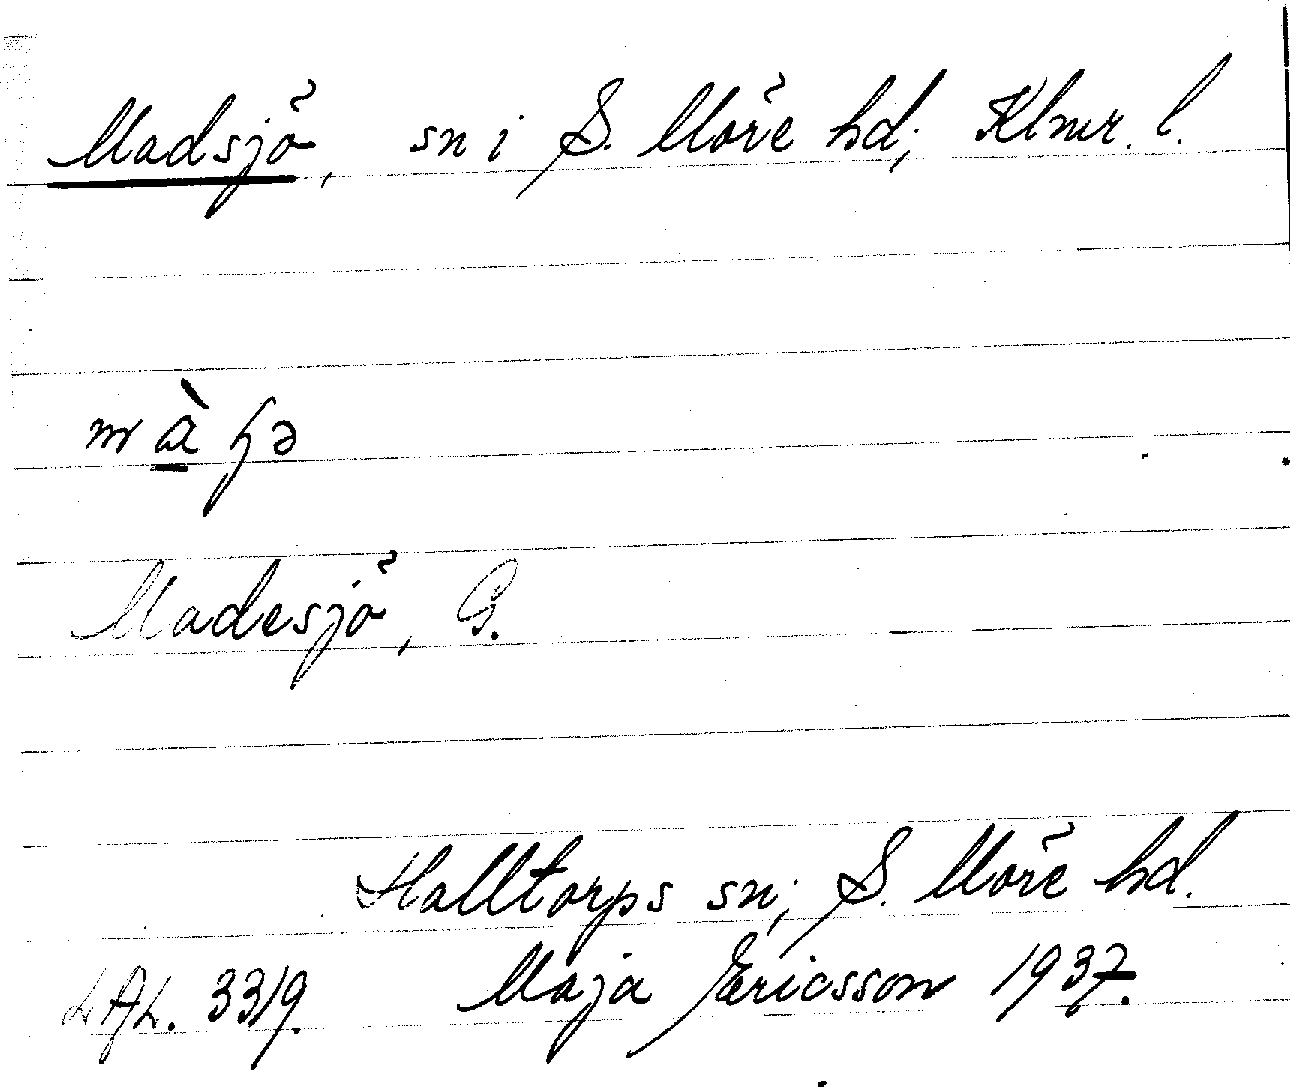 Madsjö, sn i S. Möre hd, Klmr. l.
mà̱ɧə
Madesjö, G.
Halltorps sn, S. Möre hd.
LAL. 3319. Maja Ericsson 1937.